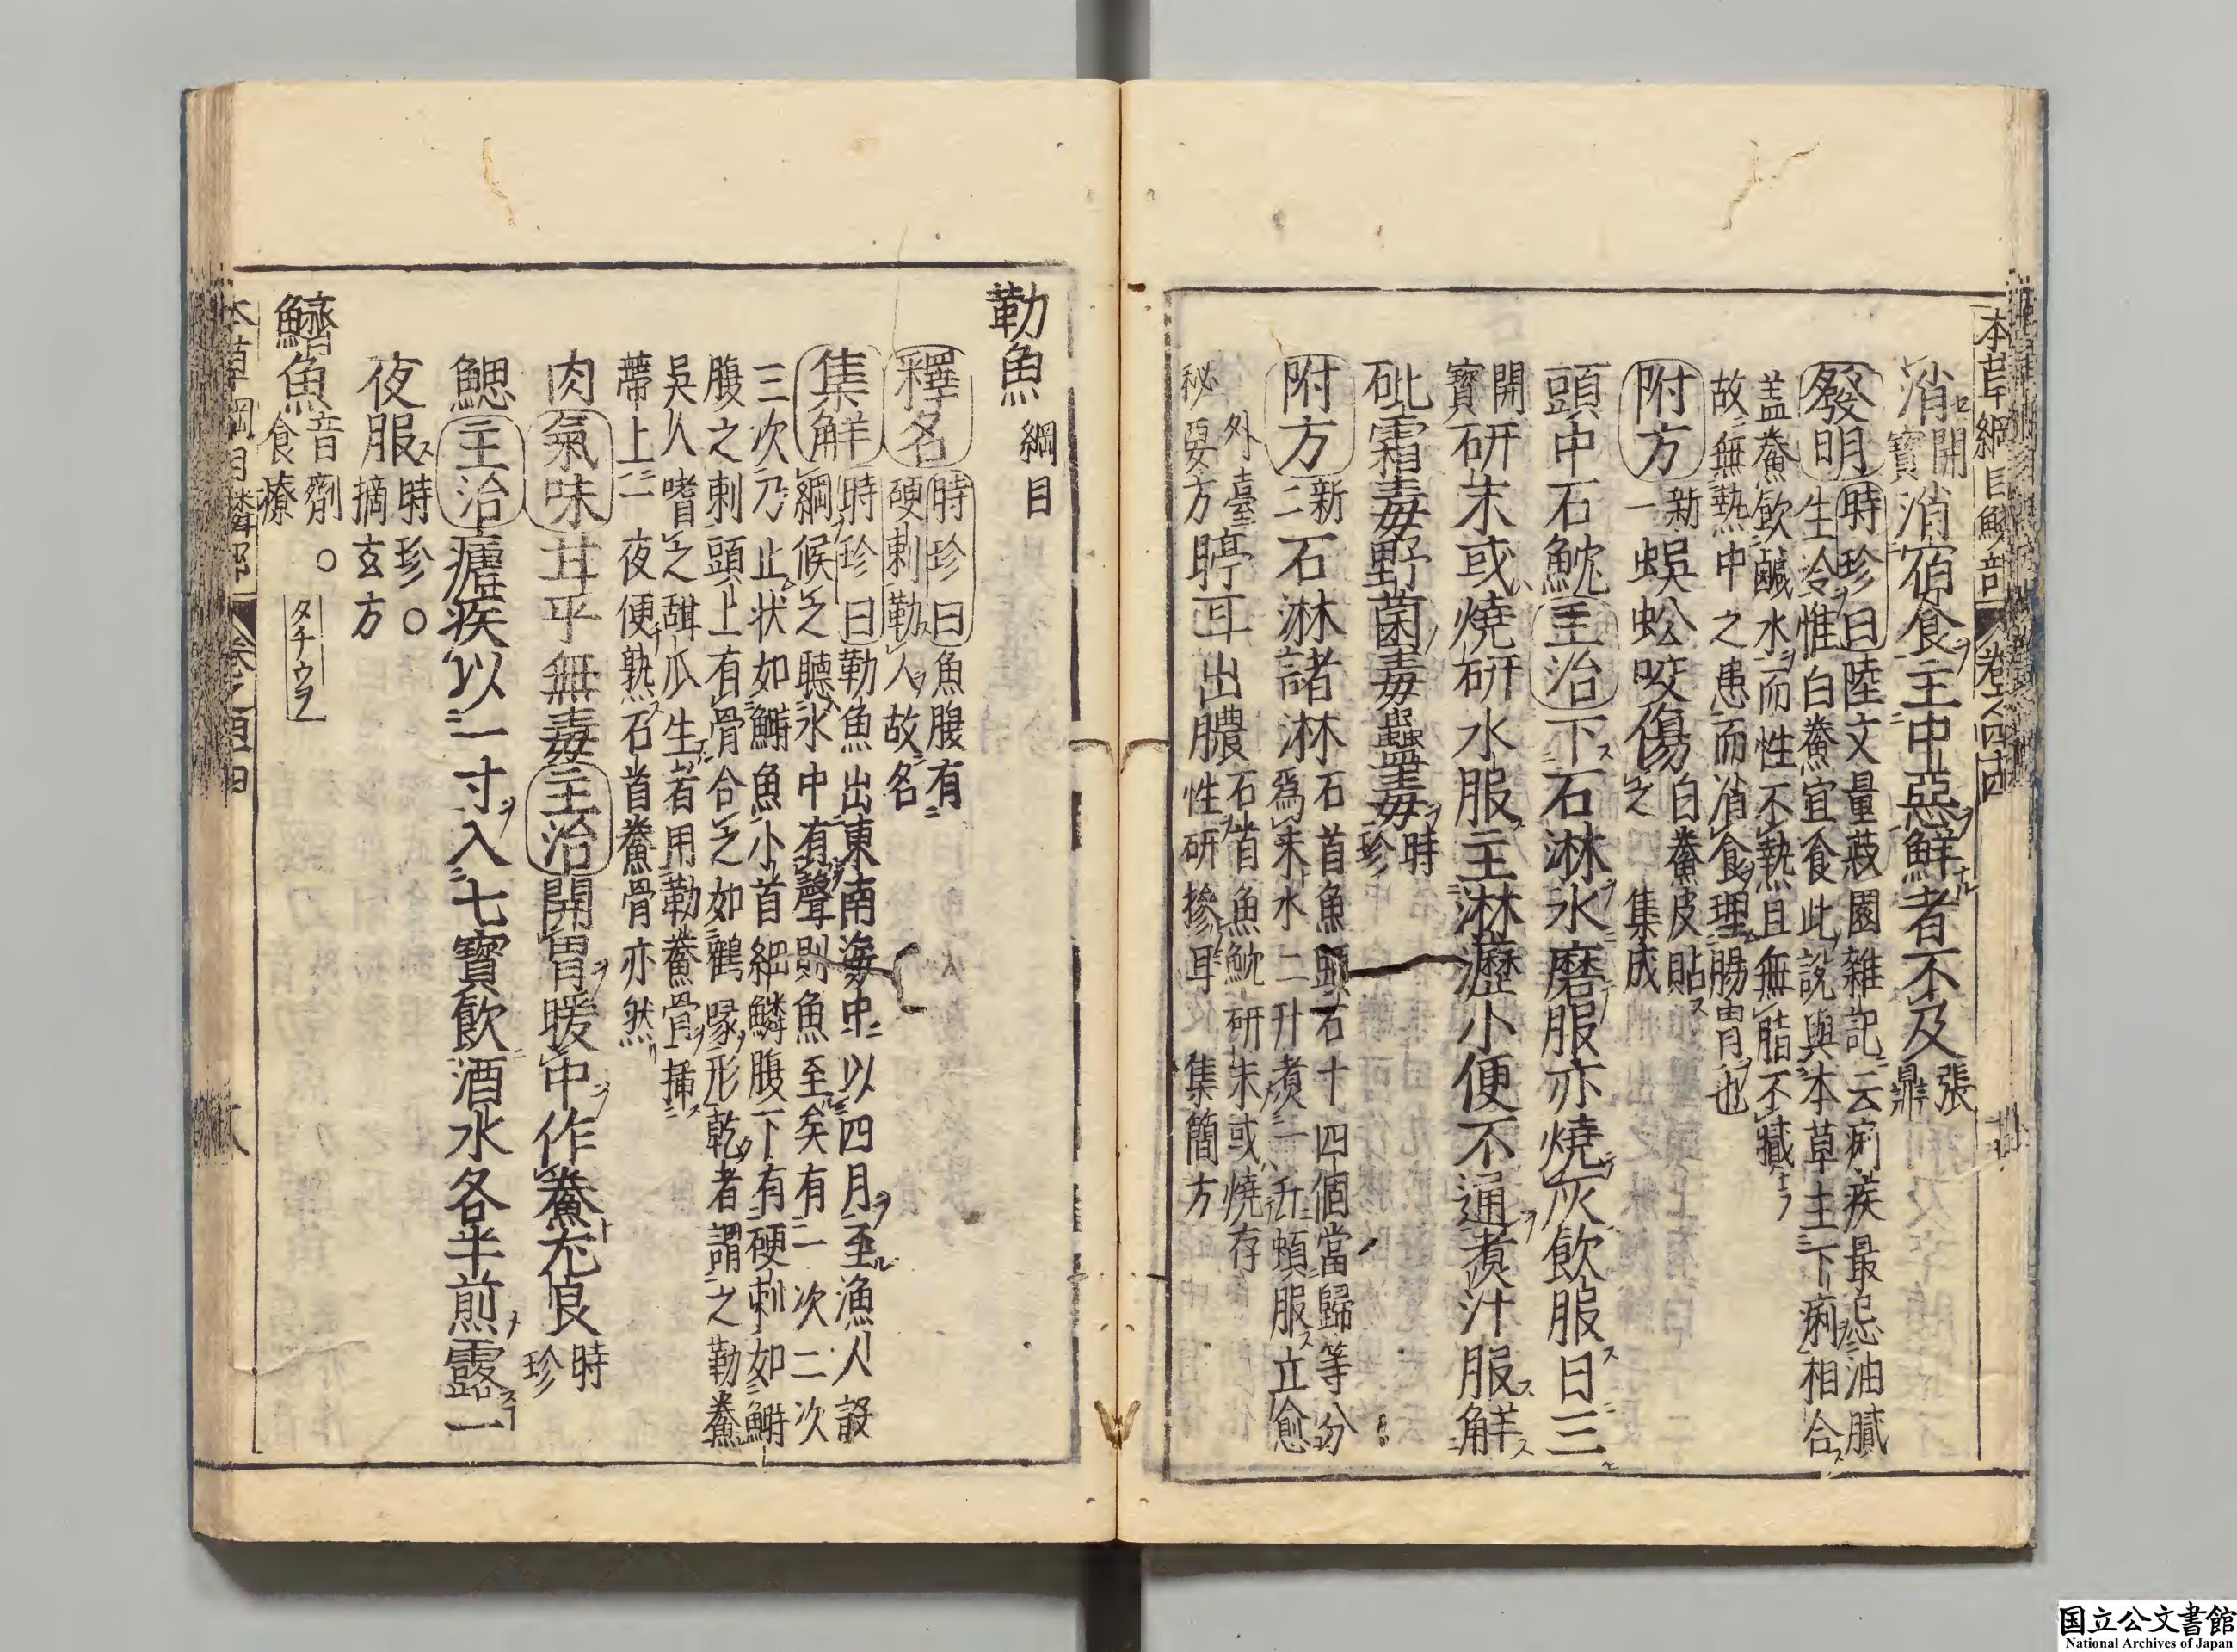 本草綱目鱗部 卷之四十四
消開寶消宿食主中惡鮮者不及張鼎
發明時珍曰陸文量菽園雜記云痢疾最忌油膩
生冷惟白鯗宜食此說與本草主下痢相合
蓋鯗飲鹹水而性不熱且無脂不膩
故無熱中之患而消食理腸胃也
附方新一蜈蚣咬傷白鯗皮貼之集成
頭中石魫主治下石淋水磨服亦燒灰飲服日三
開寶研末或燒研水服主淋瀝小便不通煮汁服解
砒霜毒野菌毒蠱毒時珍
附方新二石淋諸淋石首魚頭石十四個當歸等分
爲末水二升煮一升頓服立愈
外臺秘要方聤耳出膿石首魚魫研末或燒存
性研摻耳集簡方
勒魚綱目
釋名時珍曰魚腹有
硬刺勒人故名
集解時珍曰勒魚出東南海中以四月至漁人設
網候之聽水中有聲則魚至矣有一次二次
三次乃止狀如鰣魚小首細鱗腹下有硬刺如鰣
腹之刺頭上有骨合之如鶴喙形乾者謂之勒鯗
吳人嗜之甜瓜生者用勒鯗骨插
蔕上一夜便熟石首鯗骨亦然
肉氣味甘平無毒主治開胃暖中作鯗尤良時珍
鰓主治瘧疾以一寸入七寶飲酒水各半煎露一
夜服時珍○摘玄方
鱭魚音劑○食療 タチウヲ
本草綱目鱗部 卷之四十四
国立公文書館
National Archives of Japan